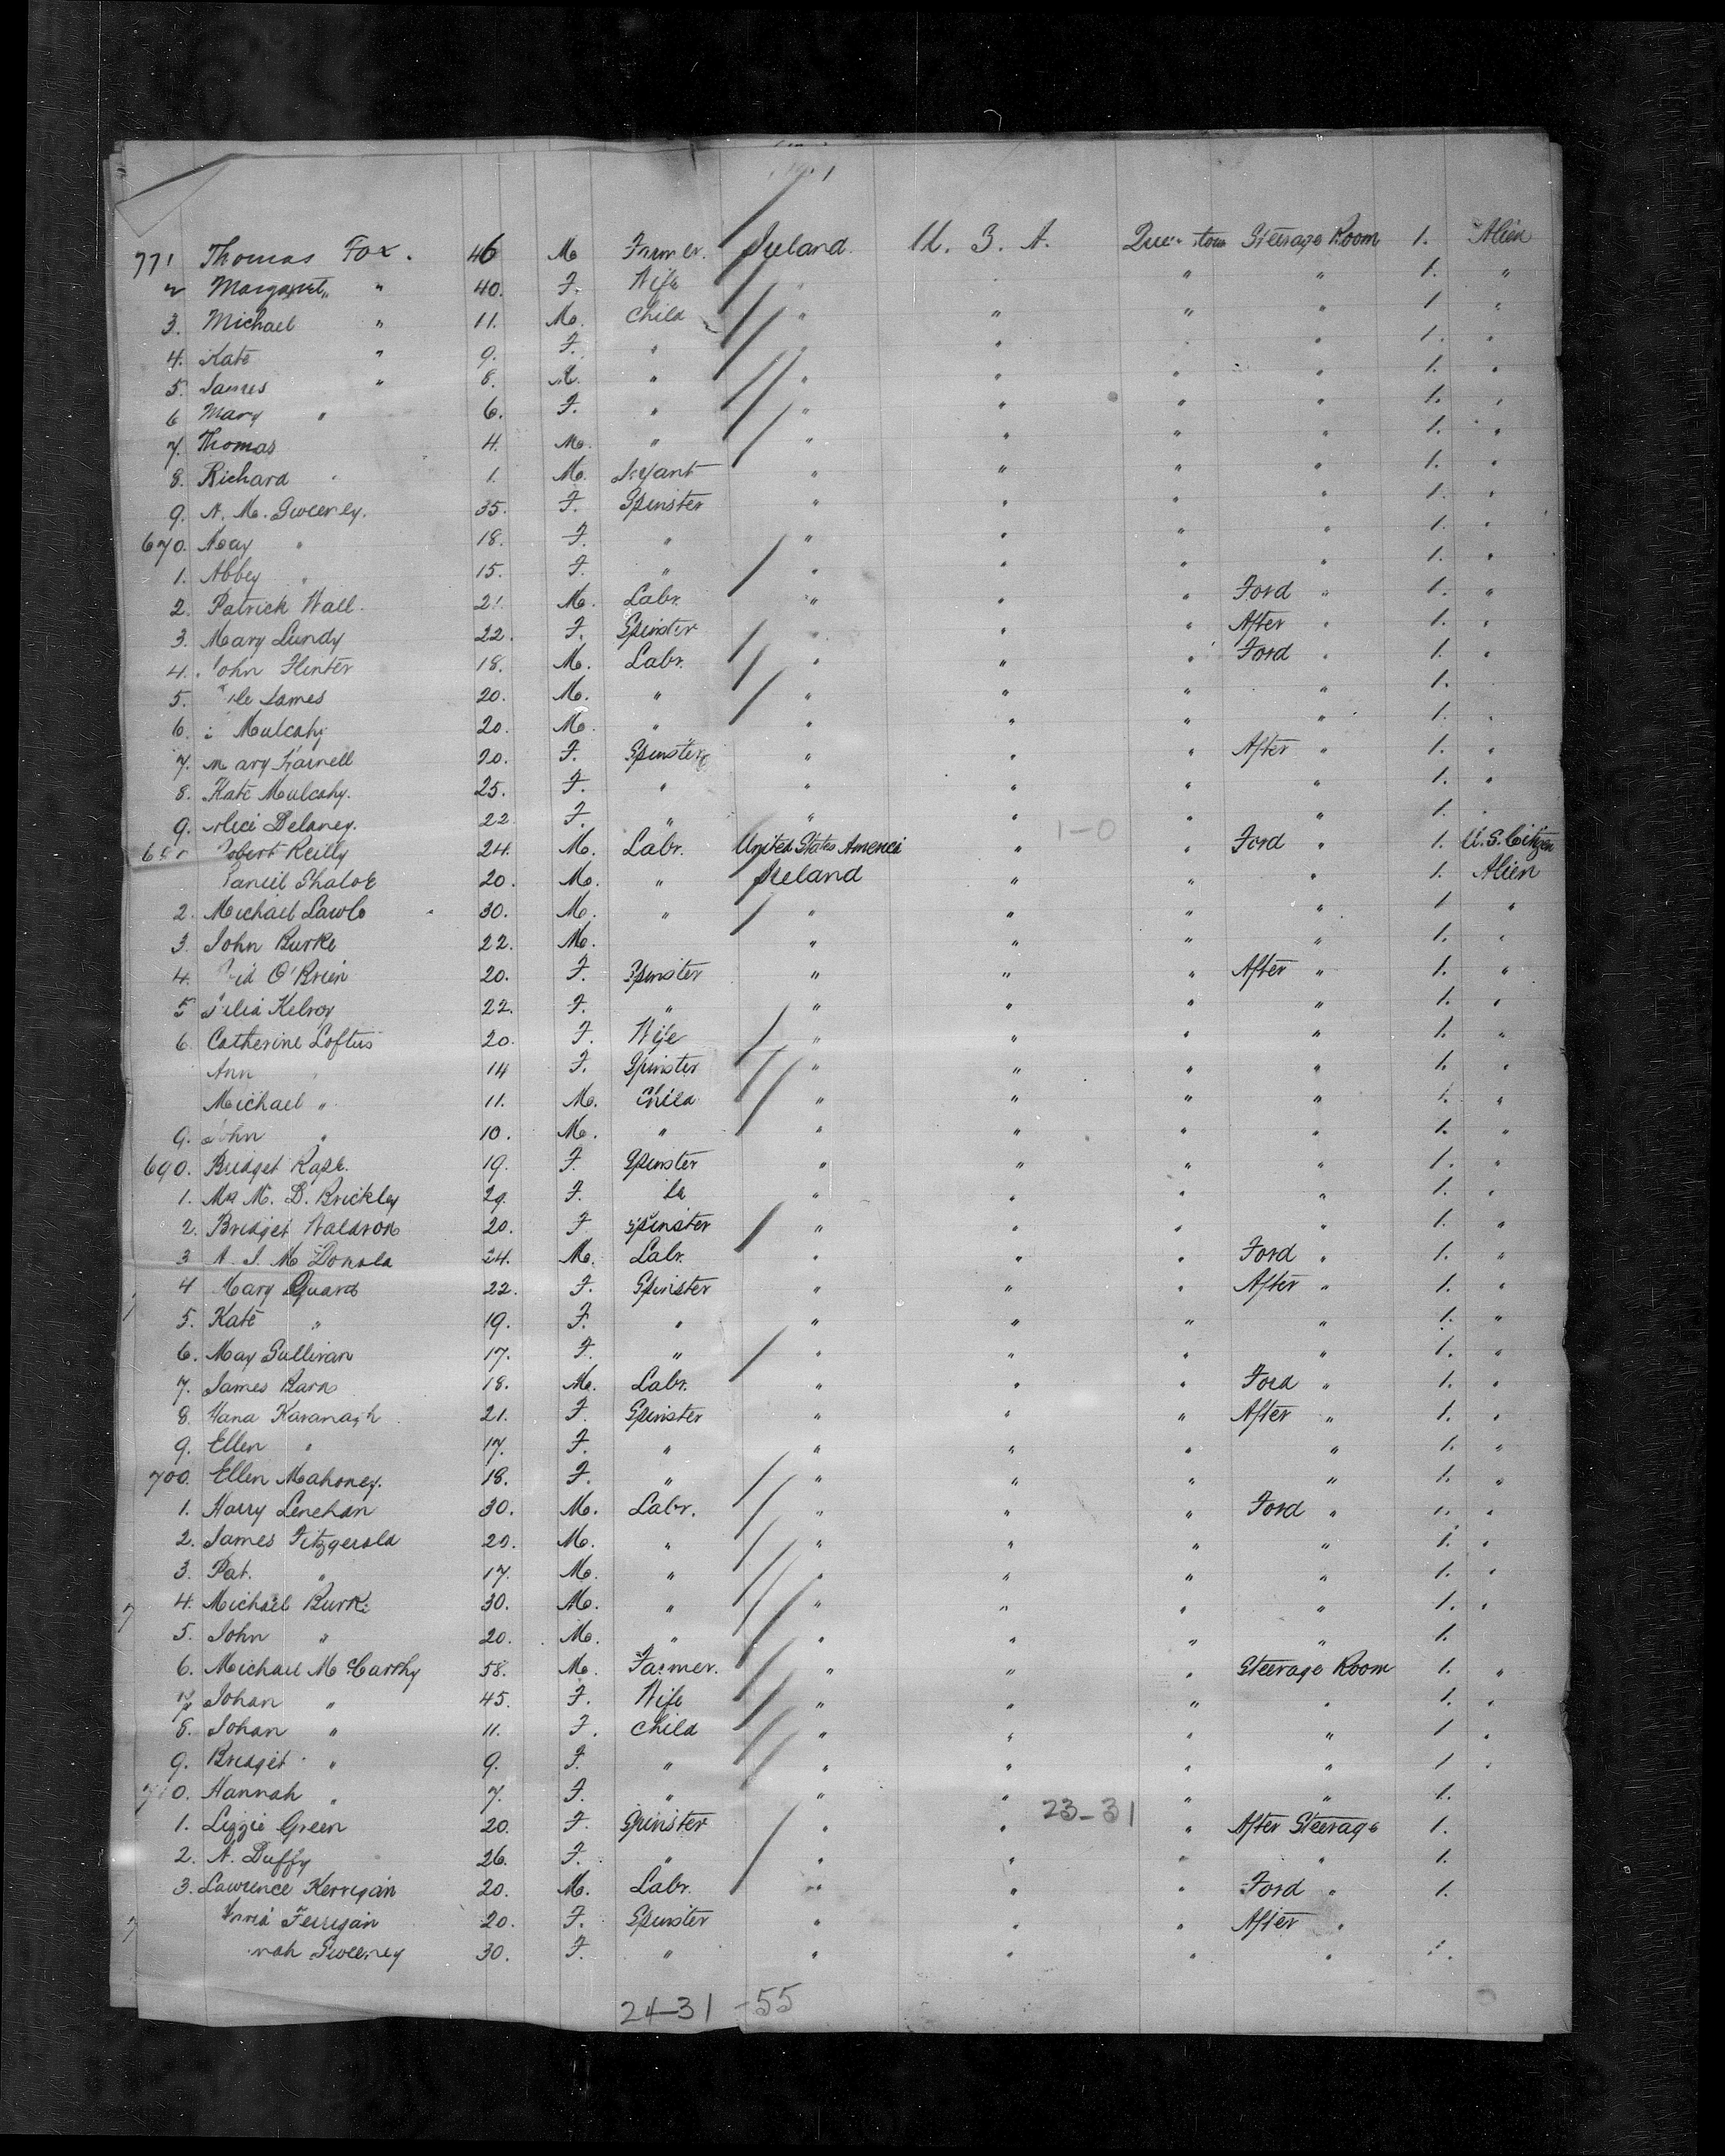 771 Thomas Fox. 46 M Farmer. Ireland. U. S. A. Steerage Room 1. Alien
Margaret " 40. F. Wife " " " 1. "
3. Michael " 11. M. Child " " " " 1 "
4. Kate " 9. F. " " " " " 1. "
5. James " 8. M. " " " " " 1. "
6 Mary " 6. F. " " " " " 1. "
7. Thomas 4. M. " " " " " 1. "
8. Richard " 1. M. " " " " 1. "
9. 35. F. Spinster " " " " 1. "
670. May " 18. F. " " " " " 1. "
1. Abbey " 15. F. " " " " " 1. "
2. Patrick Wall. 21 M. Labr. " " " Ford " 1. "
3. Mary Lundy 22. F. Spinster " " " After " 1. "
4. John Flinter 18. M. Labr. " " " Ford " 1. "
5. James 20. M. " " " " " 1.
6. Mulcahy 20. M. " " " " " 1. "
7. Mary 20. F. Spinster " " " After " 1. "
8. Kate Mulcahy. 25. F. " " " " " 1. "
9. Delaney. 22 F. " " " " " 1. "
1-0
Robert Reilly 24. M. Labr. United States " " Ford " 1. U.S. Citizen
20. M. " Ireland " " " 1. Alien
2. Michael 30. M. " " " " " 1 "
3. John Burke 22. M. " " " " 1. "
4. O'Brien 20. F. Spinster " " " After " 1. "
5 Kelroy 22. F. " " " " " 1. "
6. Catherine Loftus 20. F. Wife " " " " 1. "
Ann " 14 F. Spinster " " " " 1. "
Michael " 11. M. Child " " " " 1. "
9. John " 10. M. " " " " " 1. "
690. Bridget 19. F. Spinster " " " " 1. "
1. M. D. Brickley 29. F. " " " " 1. "
2. Bridget Waldron 20. F Spinster " " " " 1. "
3 McDonald 24. M. Labr. " " " Ford " 1. "
4 Mary 22. F. Spinster " " " After " 1. "
5. Kate " 19. F. " " " " " 1. "
6. May Sullivan 17. F. " " " " " 1. "
7. James 18. M. Labr. " " " Ford " 1. "
8. Hana Kavanagh. 21. F. Spinster " " " After " 1. "
9. Ellen " 17. F. " " " " " 1. "
700. Ellen Mahoney. 18. F. " " " " " 1. "
1. Harry Lenehan 30. M. Labr. " " " Ford " 1. "
2. James Fitzgerald 20. M. " " " " " 1. "
3. Pat. " 17. M. " " " " " 1. "
4. Michael Burke 30. M. " " " " " 1. "
5. John " 20. M. " " " " " 1.
6. Michael McCarthy 58. M. Farmer. " " " Steerage Room 1. "
7 Johan " 45. F. Wife " " " " 1. "
8. Johan " 11. F. Child " " " " 1 "
9. Bridget " 9. F. " " " " " 1 "
710. Hannah " 7. F. " " " " " 1.
23-31
1. Lizzie Green 20. F. Spinster " " " After Steerage 1.
2. N. Duffy 26. F. " " " " " 1.
3. Lawrence Kerrigan 20. M. Labr. " " " Ford " 1.
Ferrigan 20. F. Spinster " " " After "
Sweeney 30. F. " " " " "
24-31 -55